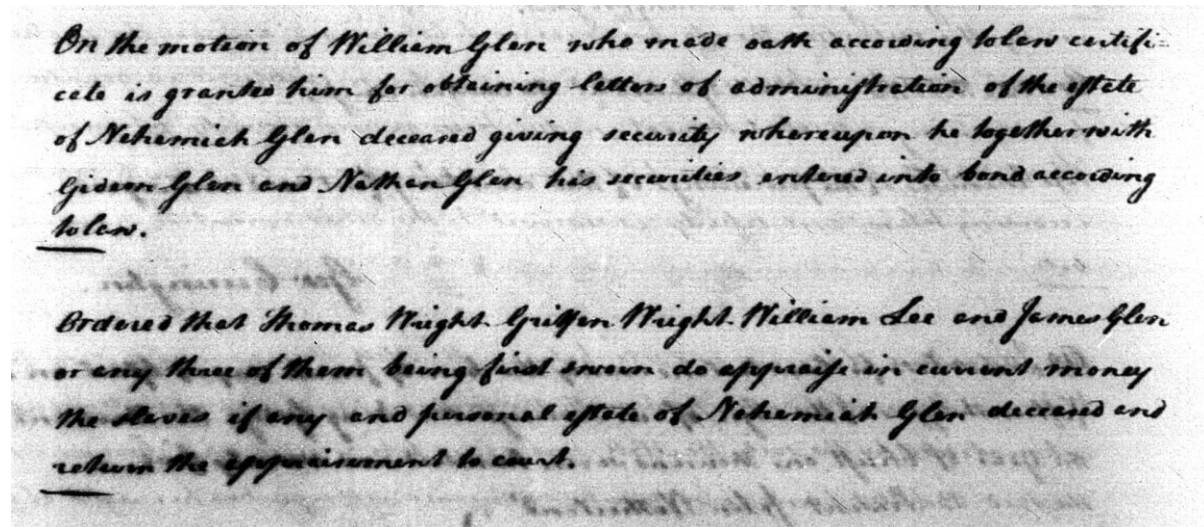 On the motion of William Glen who made oath according to law certifi=
cate is granted him for obtaining letters of administration of the estate
of Nehemiah Glen deceased giving security whereupon he together with
Gideon Glen and Nathan Glen his securities entered into bond according
to law.
Ordered that Thomas Wright Griffen Wright William Lee and James Glen
or any three of them being first sworn do appraise in current money
the slaves if any and personal estate of Nehemiah Glen deceased and
return the appraisement to court.